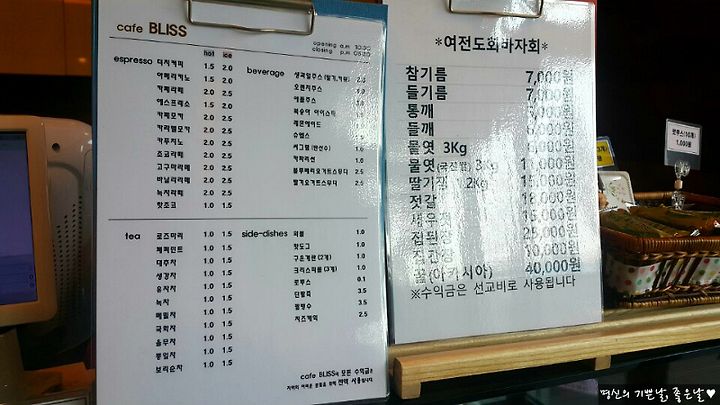 cafe BLISS
opening a.m 10:30
closing p.m 05:20
hot ice
espresso 더치커피 1.5 2.0
아메리카노 1.5 2.0
카페라떼 2.0 2.5
에스프레소 1.5 2.0
카페모카 2.0 2.5
카라멜모카 2.0 2.5
카푸치노 2.0 2.5
초코라떼 2.0 2.5
고구마라떼 2.0 2.5
바닐라라떼 2.0 2.5
녹차라떼 2.0 2.5
핫초코 1.0 1.5
beverage 생과일주스 (딸기,키위) 2.5
오렌지주스
애플주스
복숭아 아이스티
레몬에이드
슈웹스
블루베리요거트스무디
딸기요거트스무디
tea 로즈마리 1.0 1.5
페퍼민트 1.0 1.5
대추차 1.0 1.5
생강차 1.0 1.5
유자차 1.0 1.5
녹차 1.0 1.5
메밀차 1.0 1.5
국화차 1.0 1.5
율무차 1.0 1.5
둥글차 1.0 1.5
보리순차 1.0 1.5
side-dishes 와플 1.0
핫도그 1.0
구운계란 (2개) 1.0
크리스피롤 (3개) 1.0
로투스 0.1
단팥죽 3.5
팥빙수 3.5
치즈케익 2.5
cafe BLISS의 모든 수익금은
지역의 어려운 분들을 위해 전액 사용됩니다
*여전도회바자회*
참기름 7,000원
들기름 7,000원
통깨
들깨 6,000원
물엿 3Kg
물엿(국산쌀) 3Kg 11,000원
딸기쨈 1.2Kg 15,000원
젓갈 18,000원
새우젓 16,000원
집된장 25,000원
집간장 10,000원
꿀(아카시아) 40,000원
※수익금은 선교비로 사용됩니다
로투스(10개)
1,000원
명신의 기쁜날, 좋은날♥